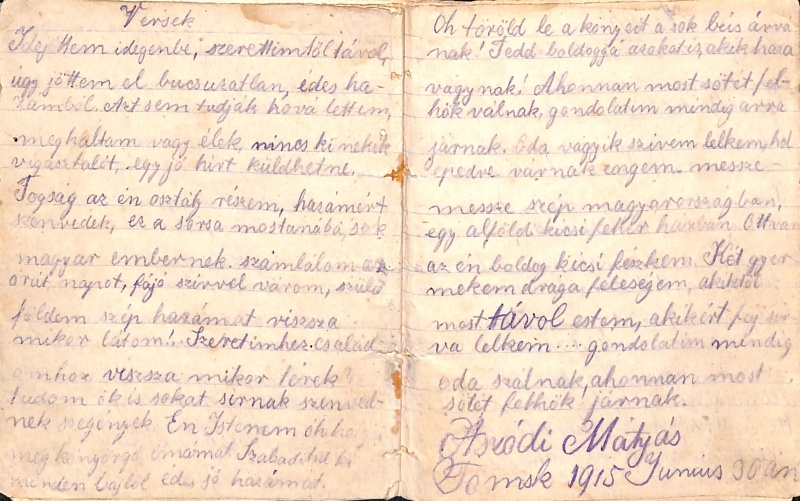 Versek
Idejöttem idegenbe, szerettimtől távol,
úgy jöttem el bucsuzatlan, édes ha-
zámból. Azt sem tudják hová lettem,
meghaltam vagy élek, nincs ki nekik
vigasztalót, egy jó hírt küldhetne.
Fogság az én osztály részem, hazámért
szenvedek, ez a sorsa mostanába, sok
magyar embernek. számlálom az
órát napot, fájó szívvel várom, szülő
földem szép hazámat viszsza
mikor látom!. Szeretimhez. család-
omhoz viszsza mikor térek?
tudom ők is sokat sirnak szenved-
nek szegények. Én Istenem óh
megkönyörgő imámat. Szabaditsd ki
minden bajtól édes jó hazámat.
Oh töröld le a könyeit a sok bús árva
nak! Tedd boldoggá azokat is, akik haza
vágynak! Ahonnan most sötét fel-
hők válnak, gondolatim mindig arra
járnak. Oda vágyik szivem lelkem, hol
epedve várnak engem. messze-
messze szép magyarországban,
egy alföldi kicsi fehér házban. Ott van
az én boldog kicsi fészkem. Két gyer
mekem drága feleségem, akiktől
most távol estem, akikért fáj sir
va lelkem ... gondolatim mindig
oda szálnak, ahonnan most
sötét felhők járnak.
Aszódi Mátyás
Tomsk 1915 Junius 30 án